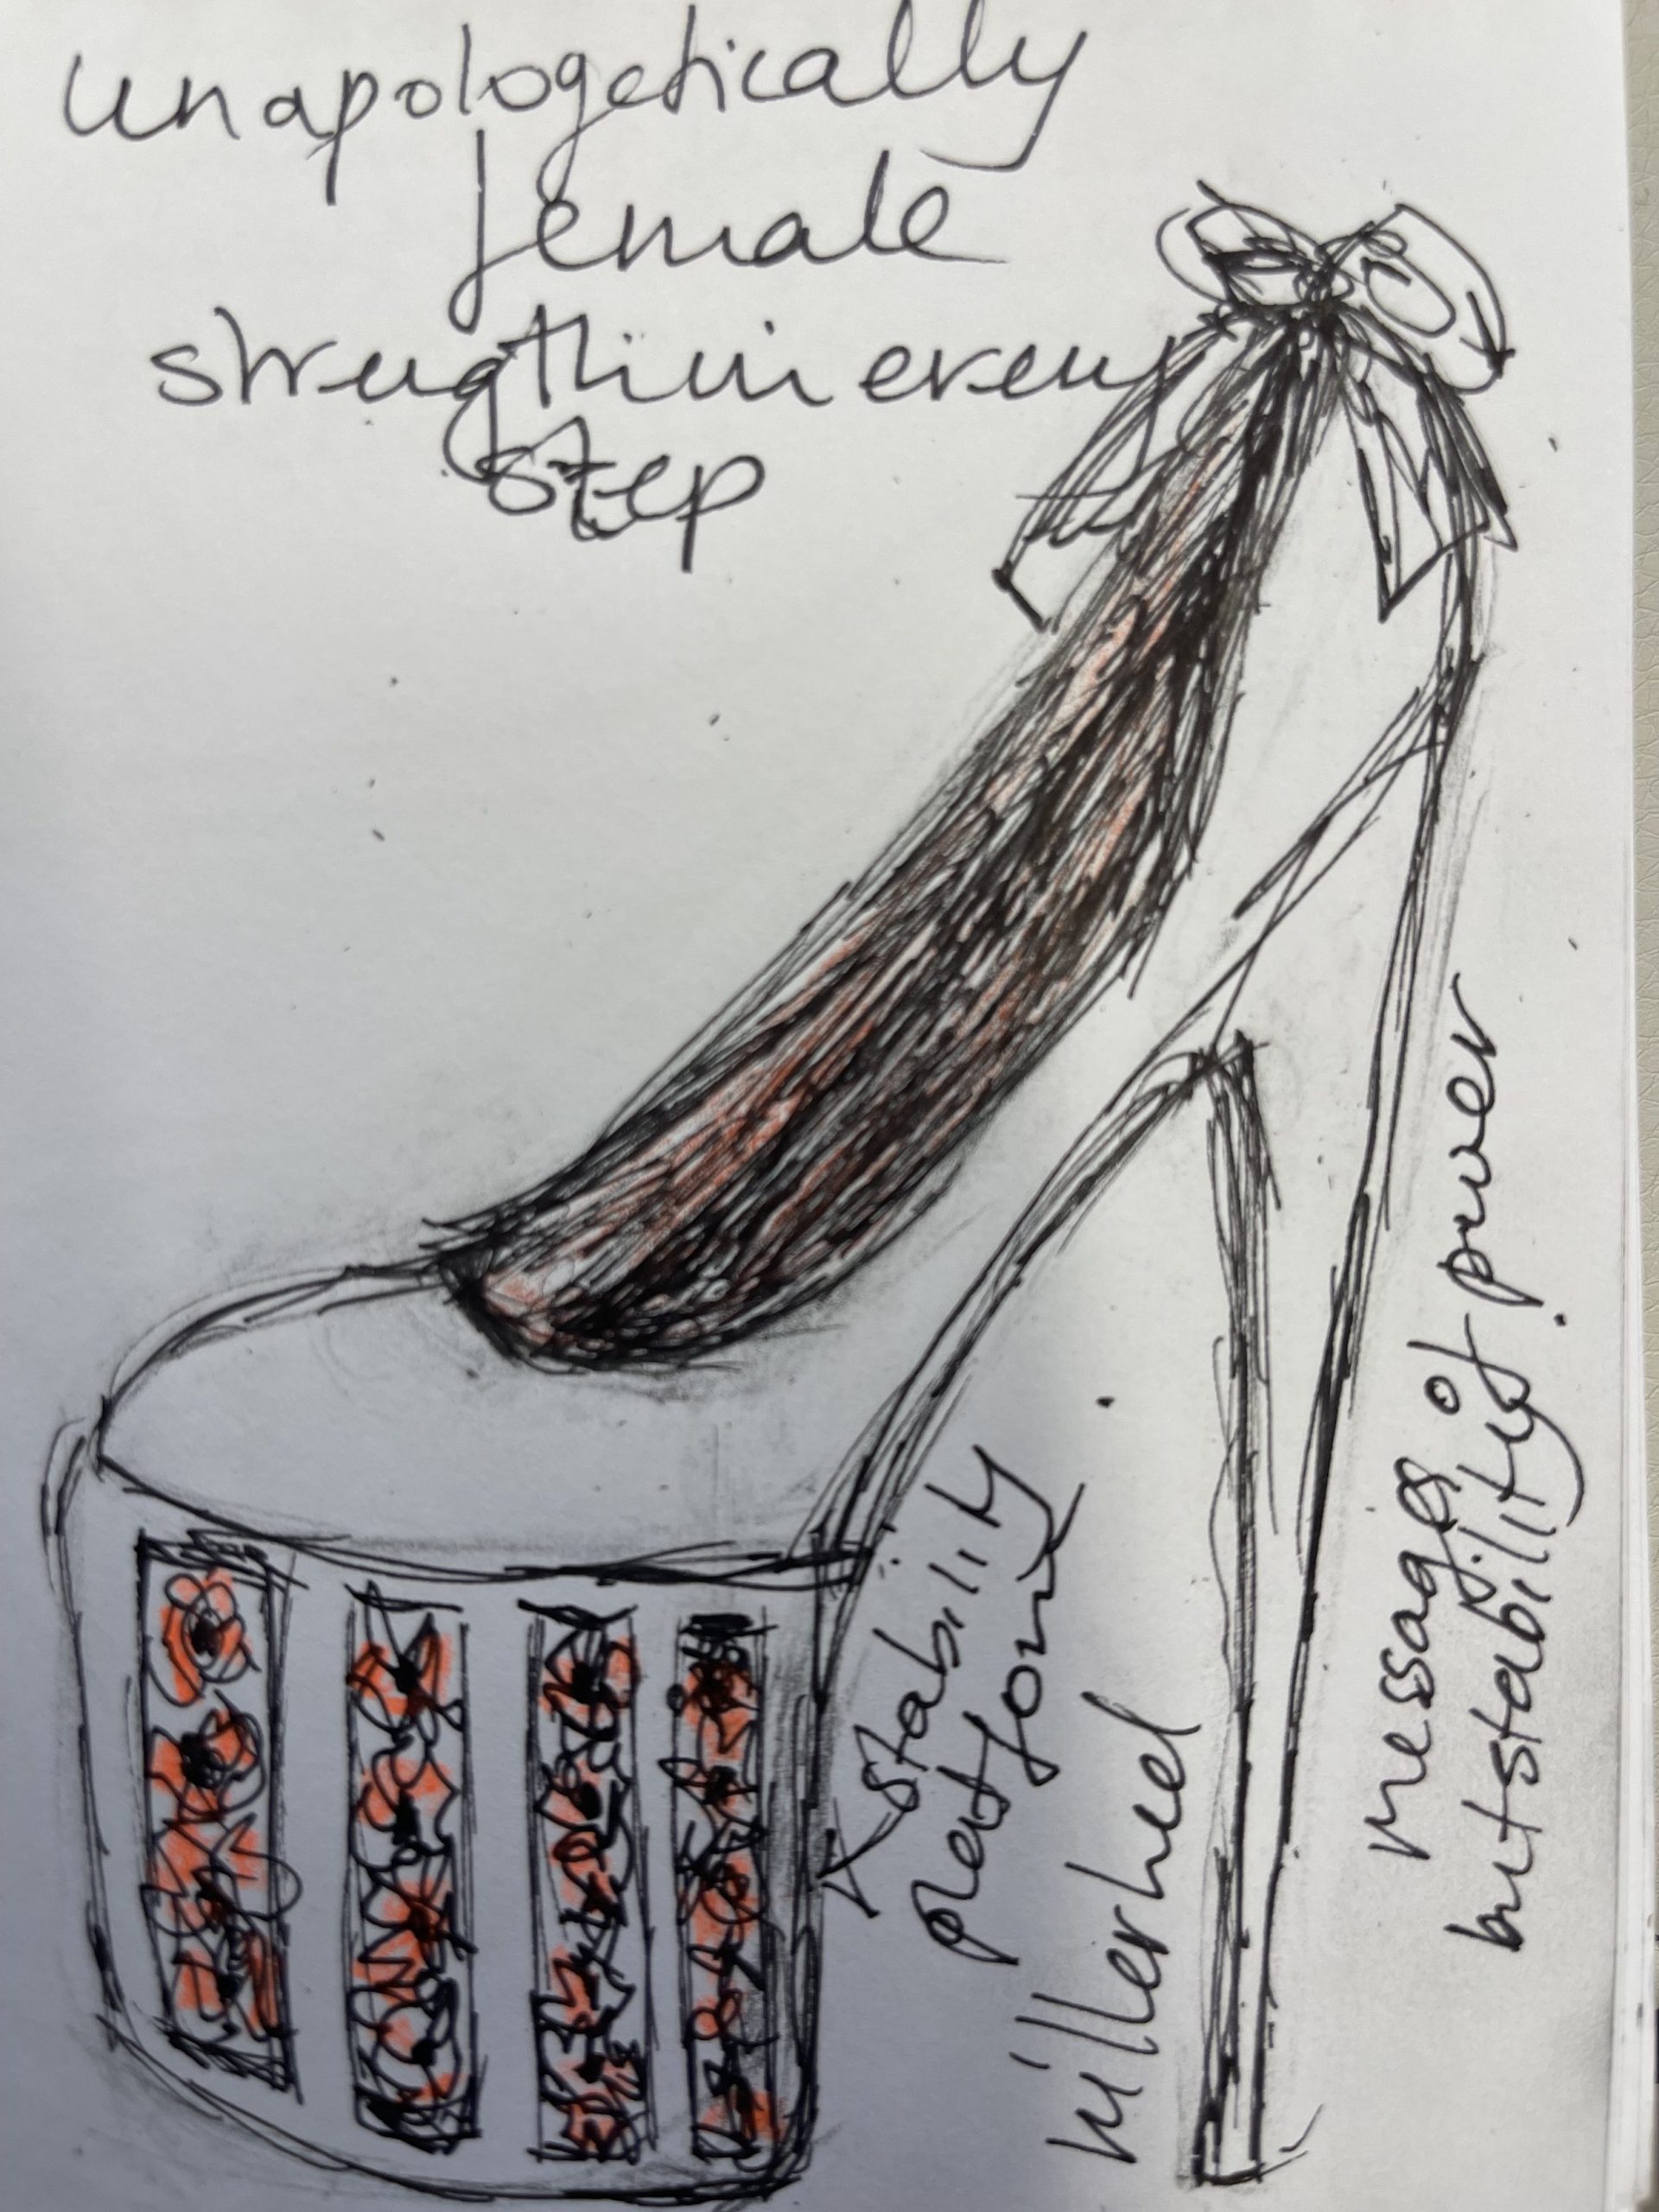 unapologetically
female
strength in every
step
stability
platform
killerheel
messages of power
but stability!